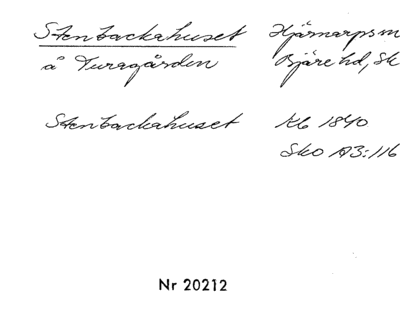 Stenbackahuset Hjärnarps sn
å Turagården Bjäre hd, Sk
Stenbackahuset Kb 1840
Sko A3:116
Nr 20212